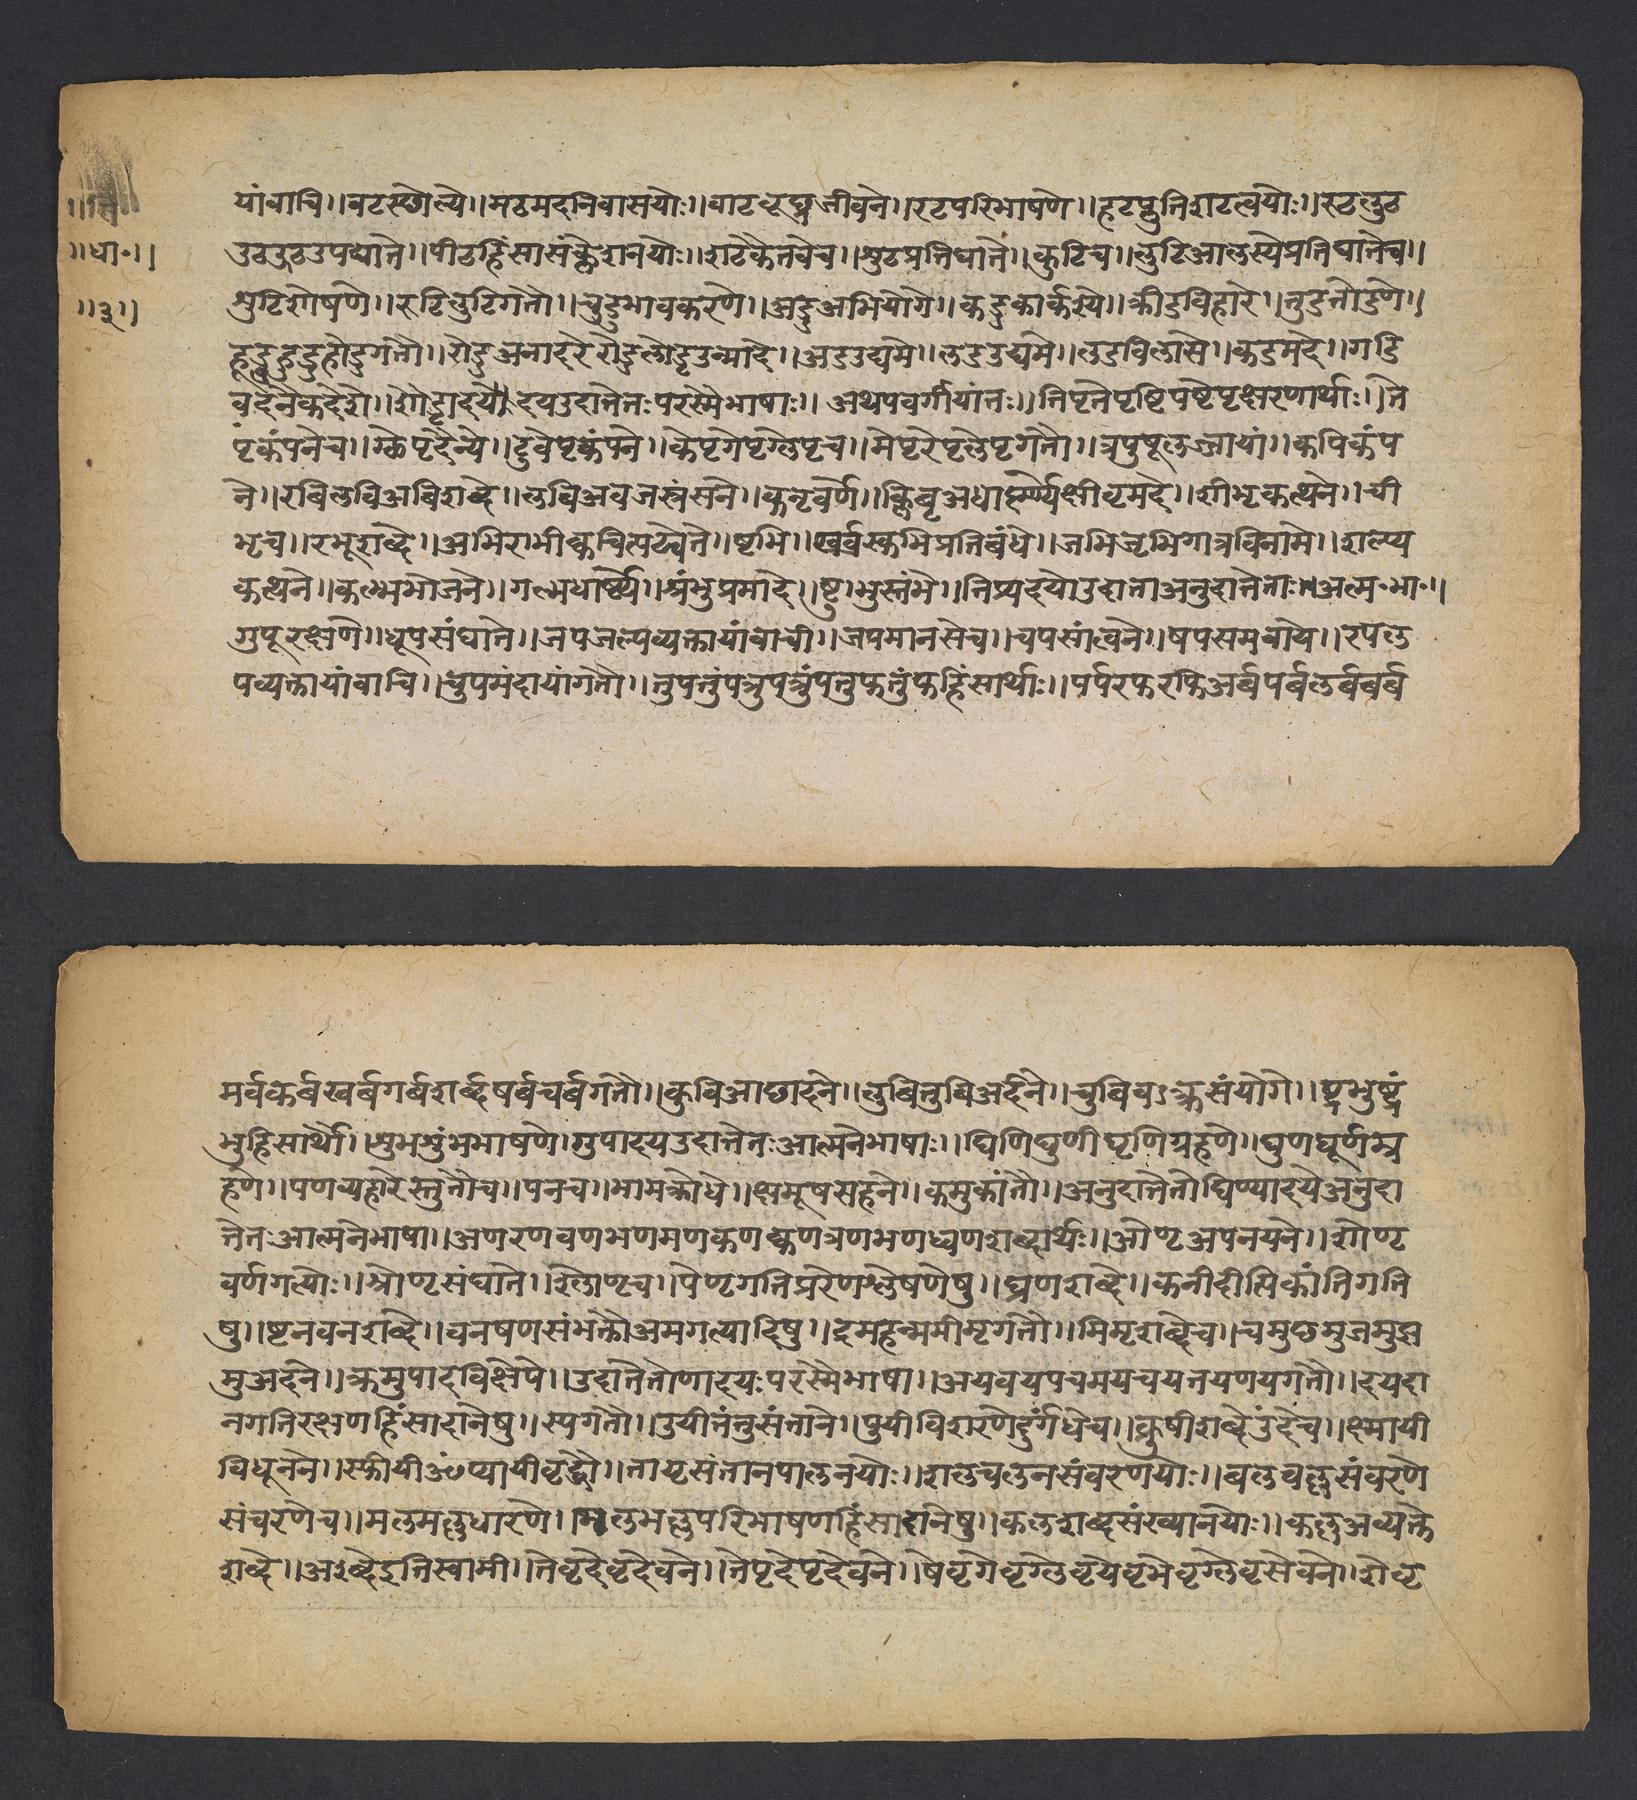 ॥सि॰
॥धा॰॥
॥३॥
यांवाचि॥वटस्छौल्ये॥मठमदनिवासयोः॥वाटधूघ्रजीवने॥रटपरिभाषणे॥हटप्लुतिशठत्वयोः॥रुठलुठ
उठऊठउपघाते॥पीठहिंसासंक्लेशनयोः॥शठकैतवेच॥शुठप्रतिघाते॥कुटिच॥लुटिआलस्येप्रतिघातेच॥
शुटिशोषणे॥रुटिलुटिगतौ॥चुड्डभावकरणे॥अड्डअभियोगे॥कड्डकार्कश्ये॥क्रीडविहारे॥तुडतोडणे॥
हूडृहुडृहोडृगतौ॥रोडृअनादरेरौडृलोडृउन्मादे॥अडउद्यमे॥लडउद्यमे॥लडविलासे॥कडमदे॥गडि
वदनैकदेशे॥शौट्रादयौ दयउदात्तेतःपरस्मैभाषाः॥अथपवर्गीयांतः॥तिपृतेपृष्टिपृष्टेपृक्षरणार्थाः॥ते
पृकंपनेच॥ग्लेपृदैन्ये॥टुवेपृकंपने॥केपृगेपृग्लेपृच॥मेपृरेपृलेपृगतौ॥त्रपुषूलज्जायां॥कपिकंप
ने॥रबिलबिअबिशब्दे॥लबिअवजस्त्रंसने॥कबृवर्णे॥क्लीबृअधार्ष्ट्येक्षीवृमदे॥शीभृकत्थने॥ची
भृच॥रभृशब्दे॥अभिरभीक्वचित्पठ्येते॥ष्टभि॥स्कभिप्रतिबंधे॥जभिजृभिगात्रविनामे॥शल्भ
कत्थने॥वल्भभोजने॥गल्भधार्ष्ट्ये॥श्रंभुप्रमादे॥ष्टुभुस्तंभे॥तिप्यदयोउदात्ताअनुदात्तेताः॥आत्म॰भा॰॥
गुपूरक्षणे॥धूपसंघाते॥जपजल्पव्यक्तायांवाची॥जपमानसेच॥चपसांत्वने॥षपसमवाये॥रपल
पव्यक्तायांवाचि॥चुपमंदायांगतौ॥तुपतुंपत्रुपत्रुंपतुफतुंफहिंसार्थाः॥पर्परफरफिअर्बपर्बलर्बबर्ब
मर्बकर्बखर्बगर्बशर्बषर्बचर्बगतौ॥कुबिआछादने॥लुबितुबिअर्दने॥चुबिवऽक्त्रसंयोगे॥षृभुषृं
भुहिंसार्थौ॥शुभशुंभभाषणे॥गुपादयउदात्तेतःआत्मनेभाषाः॥घिणिघुणीघृणिग्रहणे॥घुणघूर्णभ्र
हणे॥पणव्यहारेस्तुतौच॥पनच॥भामक्रोधे॥क्षमूषसहने॥कमुकांतौ॥अनुदात्तेतोघिण्यादयेअनुदा
त्तेतःआत्मनेभाषा॥अणरणवणभणमणकणक्वणव्रणभणध्वणशब्दार्थः॥ओणृअपनयने॥शोणृ
वर्णगत्योः॥श्रोणृसंघाते॥श्लोणृच॥पैणृगतिप्ररेणश्लेषणेषु॥ध्रणशब्दे॥कनीदीप्तिकांतिगति
षु॥ष्टनवनशब्दे॥वनषणसंभक्तौअमगत्यादिषु॥द्रमहम्ममीमृगतौ॥मिमृशब्देच॥चमुछमुजमुझ
मुअदने॥क्रमुपादविक्षेपे॥उदात्तेतोणादयःपरस्मैभाषा॥अयवयपयमयचयतयणयगतौ॥दयदा
नगतिरक्षणहिंसादानेषु॥स्पगतौ॥उयीतंतुसंताने॥पुयीविशरणेदुर्गंधेच॥क्रुषीशब्देउंदेच॥क्ष्मायी
विधूनने॥स्फीयीओंप्यायीवृद्धौ॥तायृसंतानपालनयोः॥शलचलनसंवरणयोः॥बलवल्लसंवरणे
संचरणेच॥मलमल्लधारणे॥भलभल्लपरिभाषणहिंसादानेषु॥कलशब्दसंख्यानयोः॥कल्लअव्यक्ते
शब्दे॥अशब्देइतिस्वामी॥तेवृदेवृदेवने॥तेपृदेपृदेवने॥षेवृगेवृग्लेवृपेवृमेवृग्लेवृसेवने॥शेवृ